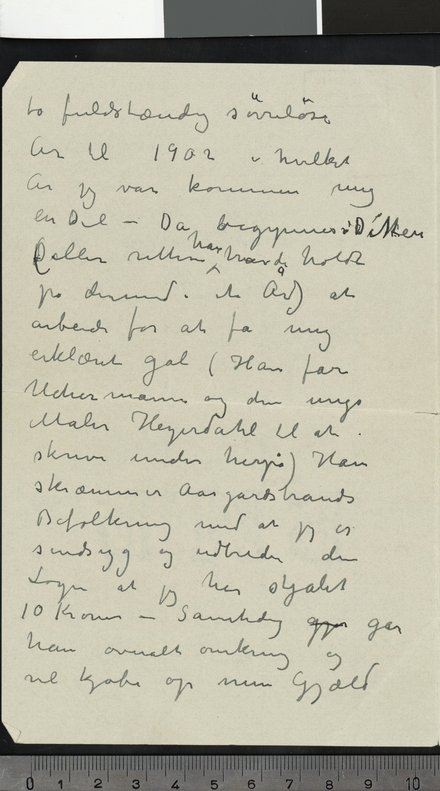 to fuldstændig sövnlöse
År til 1902 i hvilket
År jeg var kommen mig
en Del – Da begynner Ditten
(eller rettere har havde holdt
på dermed i  År) at
arbeide for at få mig
erklæret gal ( Han får
Uchermann og den unge
Maler Heyerdahl til at
skrive under herpå) Han
skræmmer Aasgaardstrands
Befolkning med at jeg er
sindsyg og udbreder den
Løgn at jeg har stjålet
10 Kroner – Samtidig gjør går
han overalt omkring og
vil kjøbe op min Gjæld
0 1 2 3 4 5 6 7 8 9 10